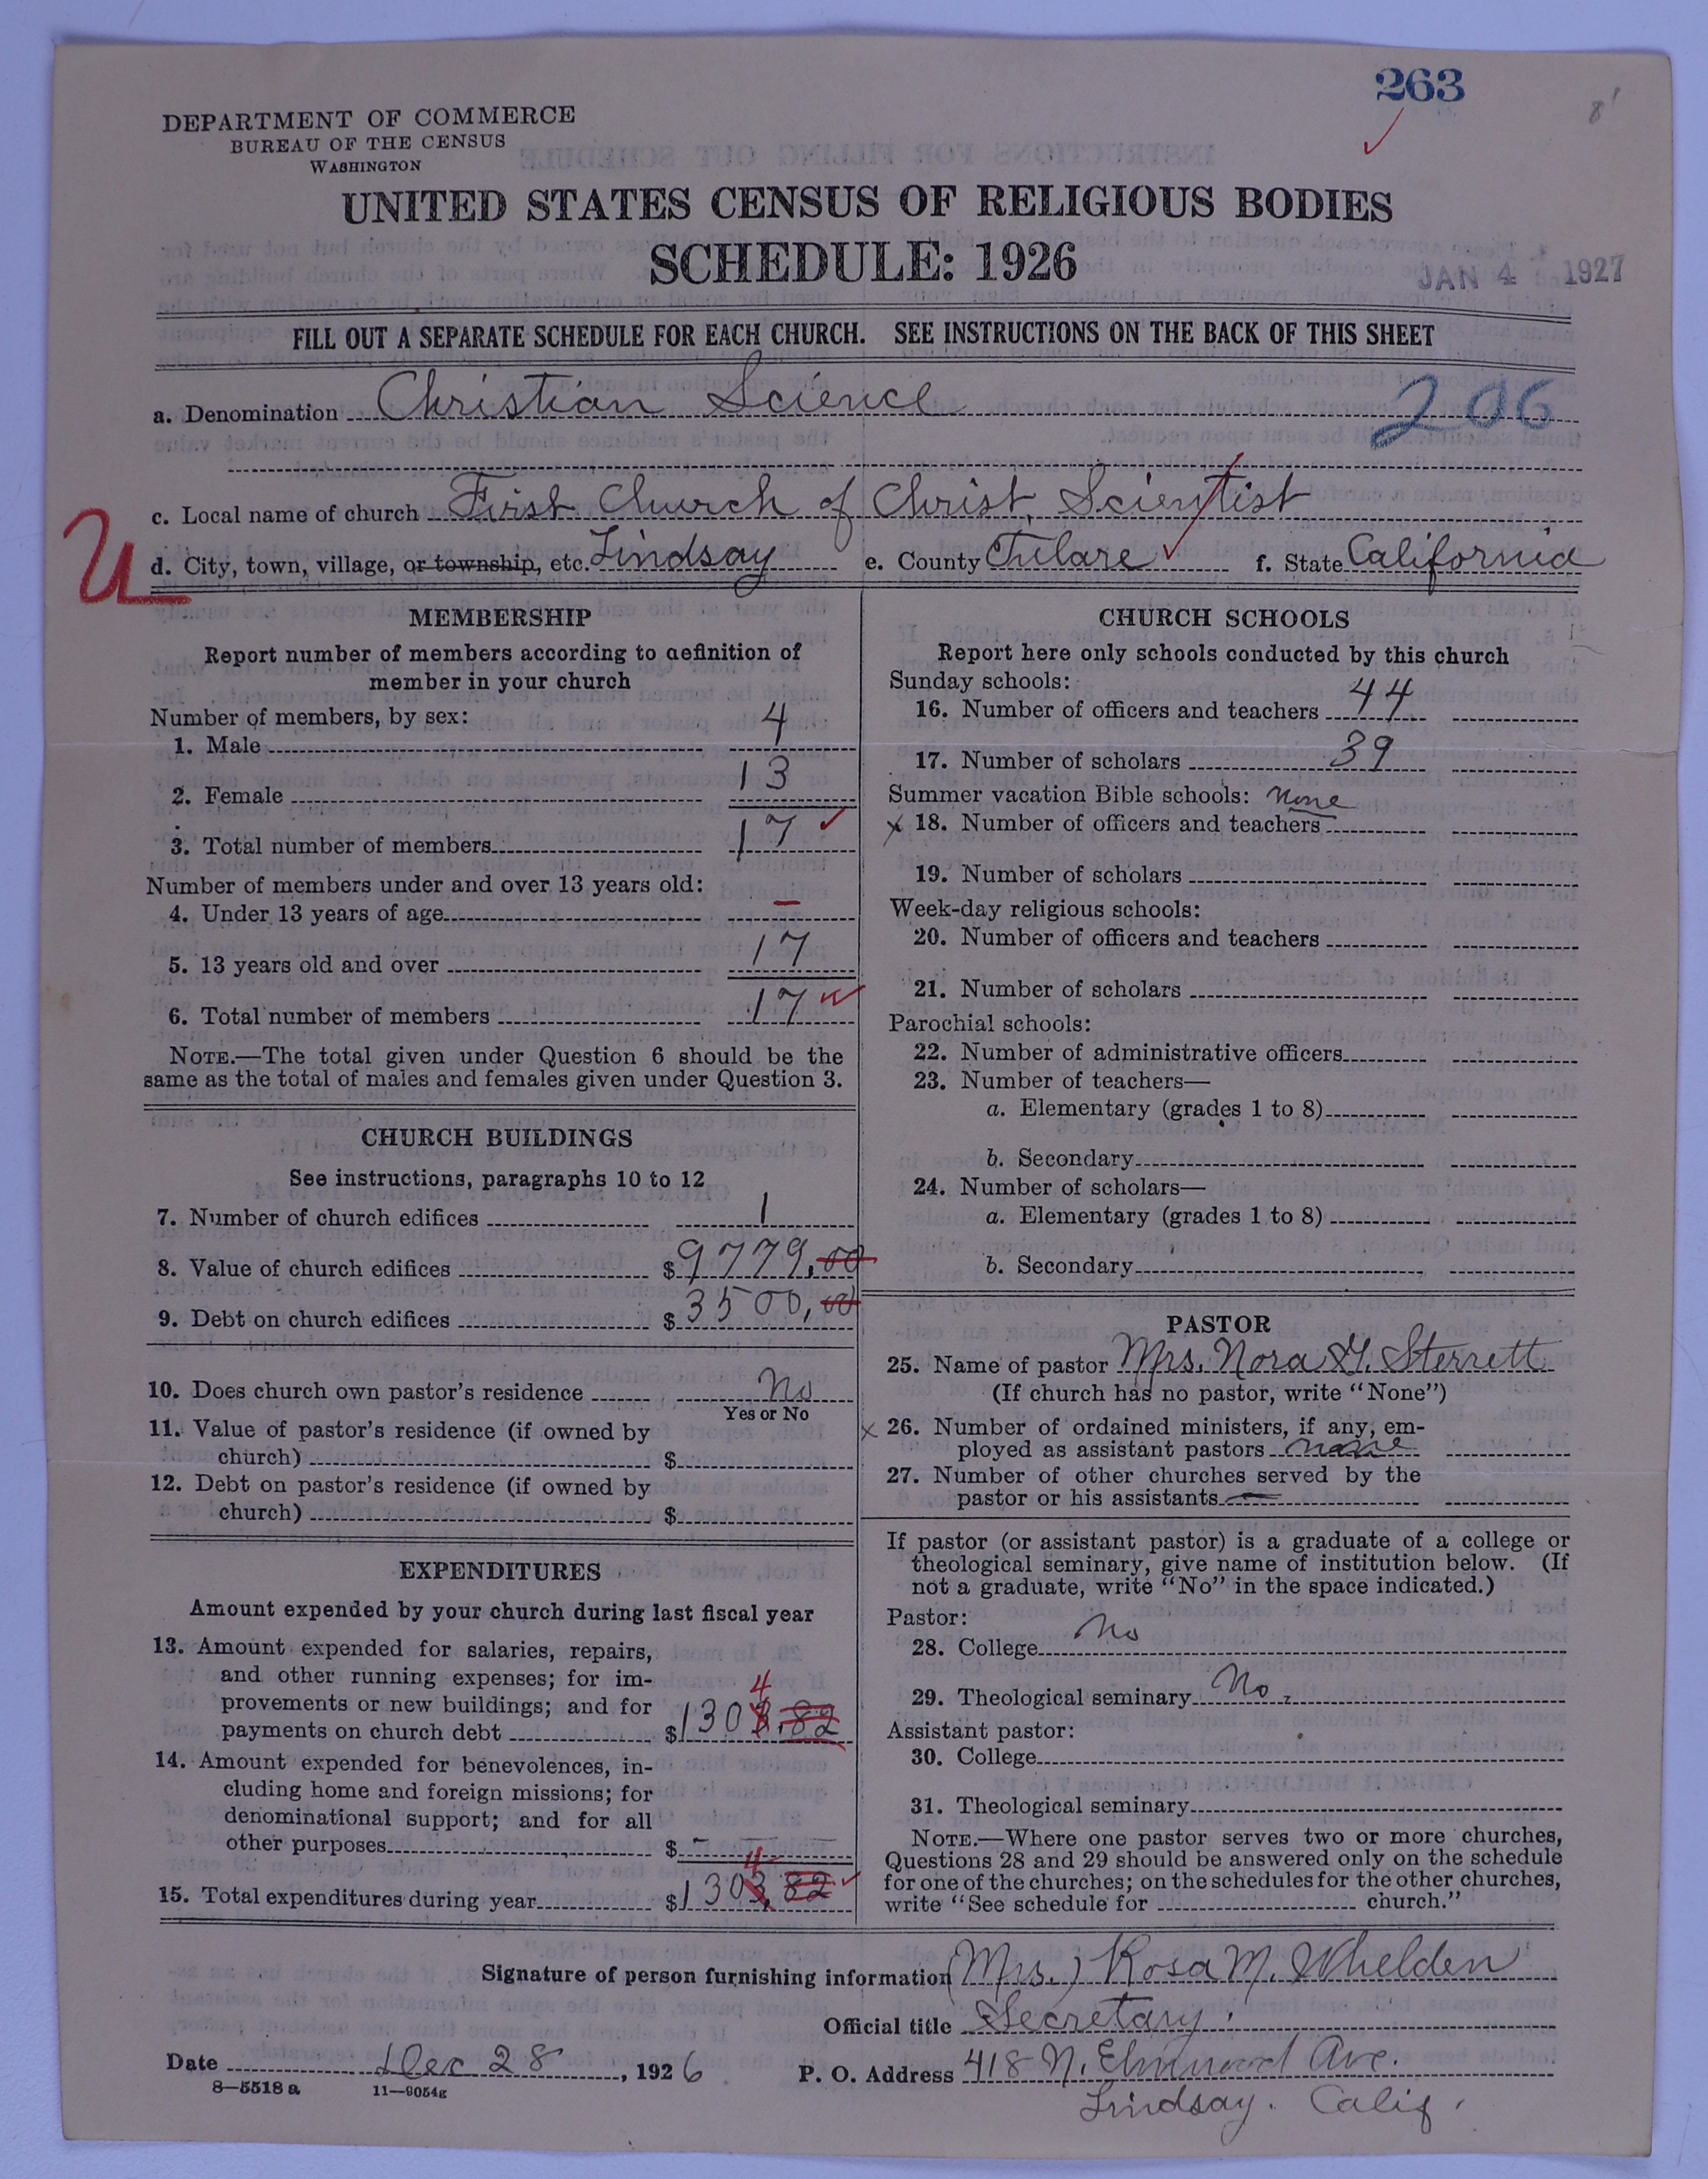 263
8'
DEPARTMENT OF COMMERCE
BUREAU OF THE CENSUS
WASHINGTON
UNITED STATES CENSUS OF RELIGIOUS BODIES
SCHEDULE: 1926
JAN 4 1927
FILL OUT A SEPARATE SCHEDULE FOR EACH CHURCH. SEE INSTRUCTIONS ON THE BACK OF THIS SHEET
a. Denomination Christian Science 206
c. Local name of church First Church of Christ, Scientist
U
d. City, town, village, or township, etc. Lindsay e. County Tulare f. State California
MEMBERSHIP
Report number of members according to definition of
member in your church
Number of members, by sex:
1. Male 4
2. Female 13
3. Total number of members 17
Number of members under and over 13 years old:
4. Under 13 years of age –
5. 13 years old and over 17
6. Total number of members 17
NOTE.—The total given under Question 6 should be the
same as the total of males and females given under Question 3.
CHURCH BUILDINGS
See instructions, paragraphs 10 to 12
7. Number of church edifices 1
8. Value of church edifices $ 9779,00
9. Debt on church edifices $ 3500,00
10. Does church own pastor's residence No
Yes or No
11. Value of pastor's residence (if owned by
church) $
12. Debt on pastor's residence (if owned by
church) $
EXPENDITURES
Amount expended by your church during last fiscal year
13. Amount expended for salaries, repairs,
and other running expenses; for im-
provements or new buildings; and for
4
payments on church debt $ 1303.82
14. Amount expended for benevolences, in-
cluding home and foreign missions; for
denominational support; and for all
other purposes $ – — —
4
15. Total expenditures during year $ 1303,82
CHURCH SCHOOLS
Report here only schools conducted by this church
Sunday schools:
16. Number of officers and teachers 44
17. Number of scholars 39
Summer vacation Bible schools: None
x 18. Number of officers and teachers
19. Number of scholars
Week-day religious schools:
20. Number of officers and teachers
21. Number of scholars
Parochial schools:
22. Number of administrative officers
23. Number of teachers—
a. Elementary (grades 1 to 8)
b. Secondary
24. Number of scholars—
a. Elementary (grades 1 to 8)
b. Secondary
PASTOR
25. Name of pastor Mrs. Nora G. Sterrett
(If church has no pastor, write "None")
x 26. Number of ordained ministers, if any, em-
ployed as assistant pastors none
27. Number of other churches served by the
pastor or his assistants —
If pastor (or assistant pastor) is a graduate of a college or
theological seminary, give name of institution below. (If
not a graduate, write "No" in the space indicated.)
Pastor:
28. College No
29. Theological seminary No.
Assistant pastor:
30. College
31. Theological seminary
NOTE.—Where one pastor serves two or more churches,
Questions 28 and 29 should be answered only on the schedule
for one of the churches; on the schedules for the other churches,
write "See schedule for church."
Signature of person furnishing information (Mrs.) Rosa M. Whelden
Official title Secretary.
Date Dec 28, 1926 P. O. Address 418 N. Elmwood Ave.
Lindsay. Calif.
8—5518 a 11—9054g